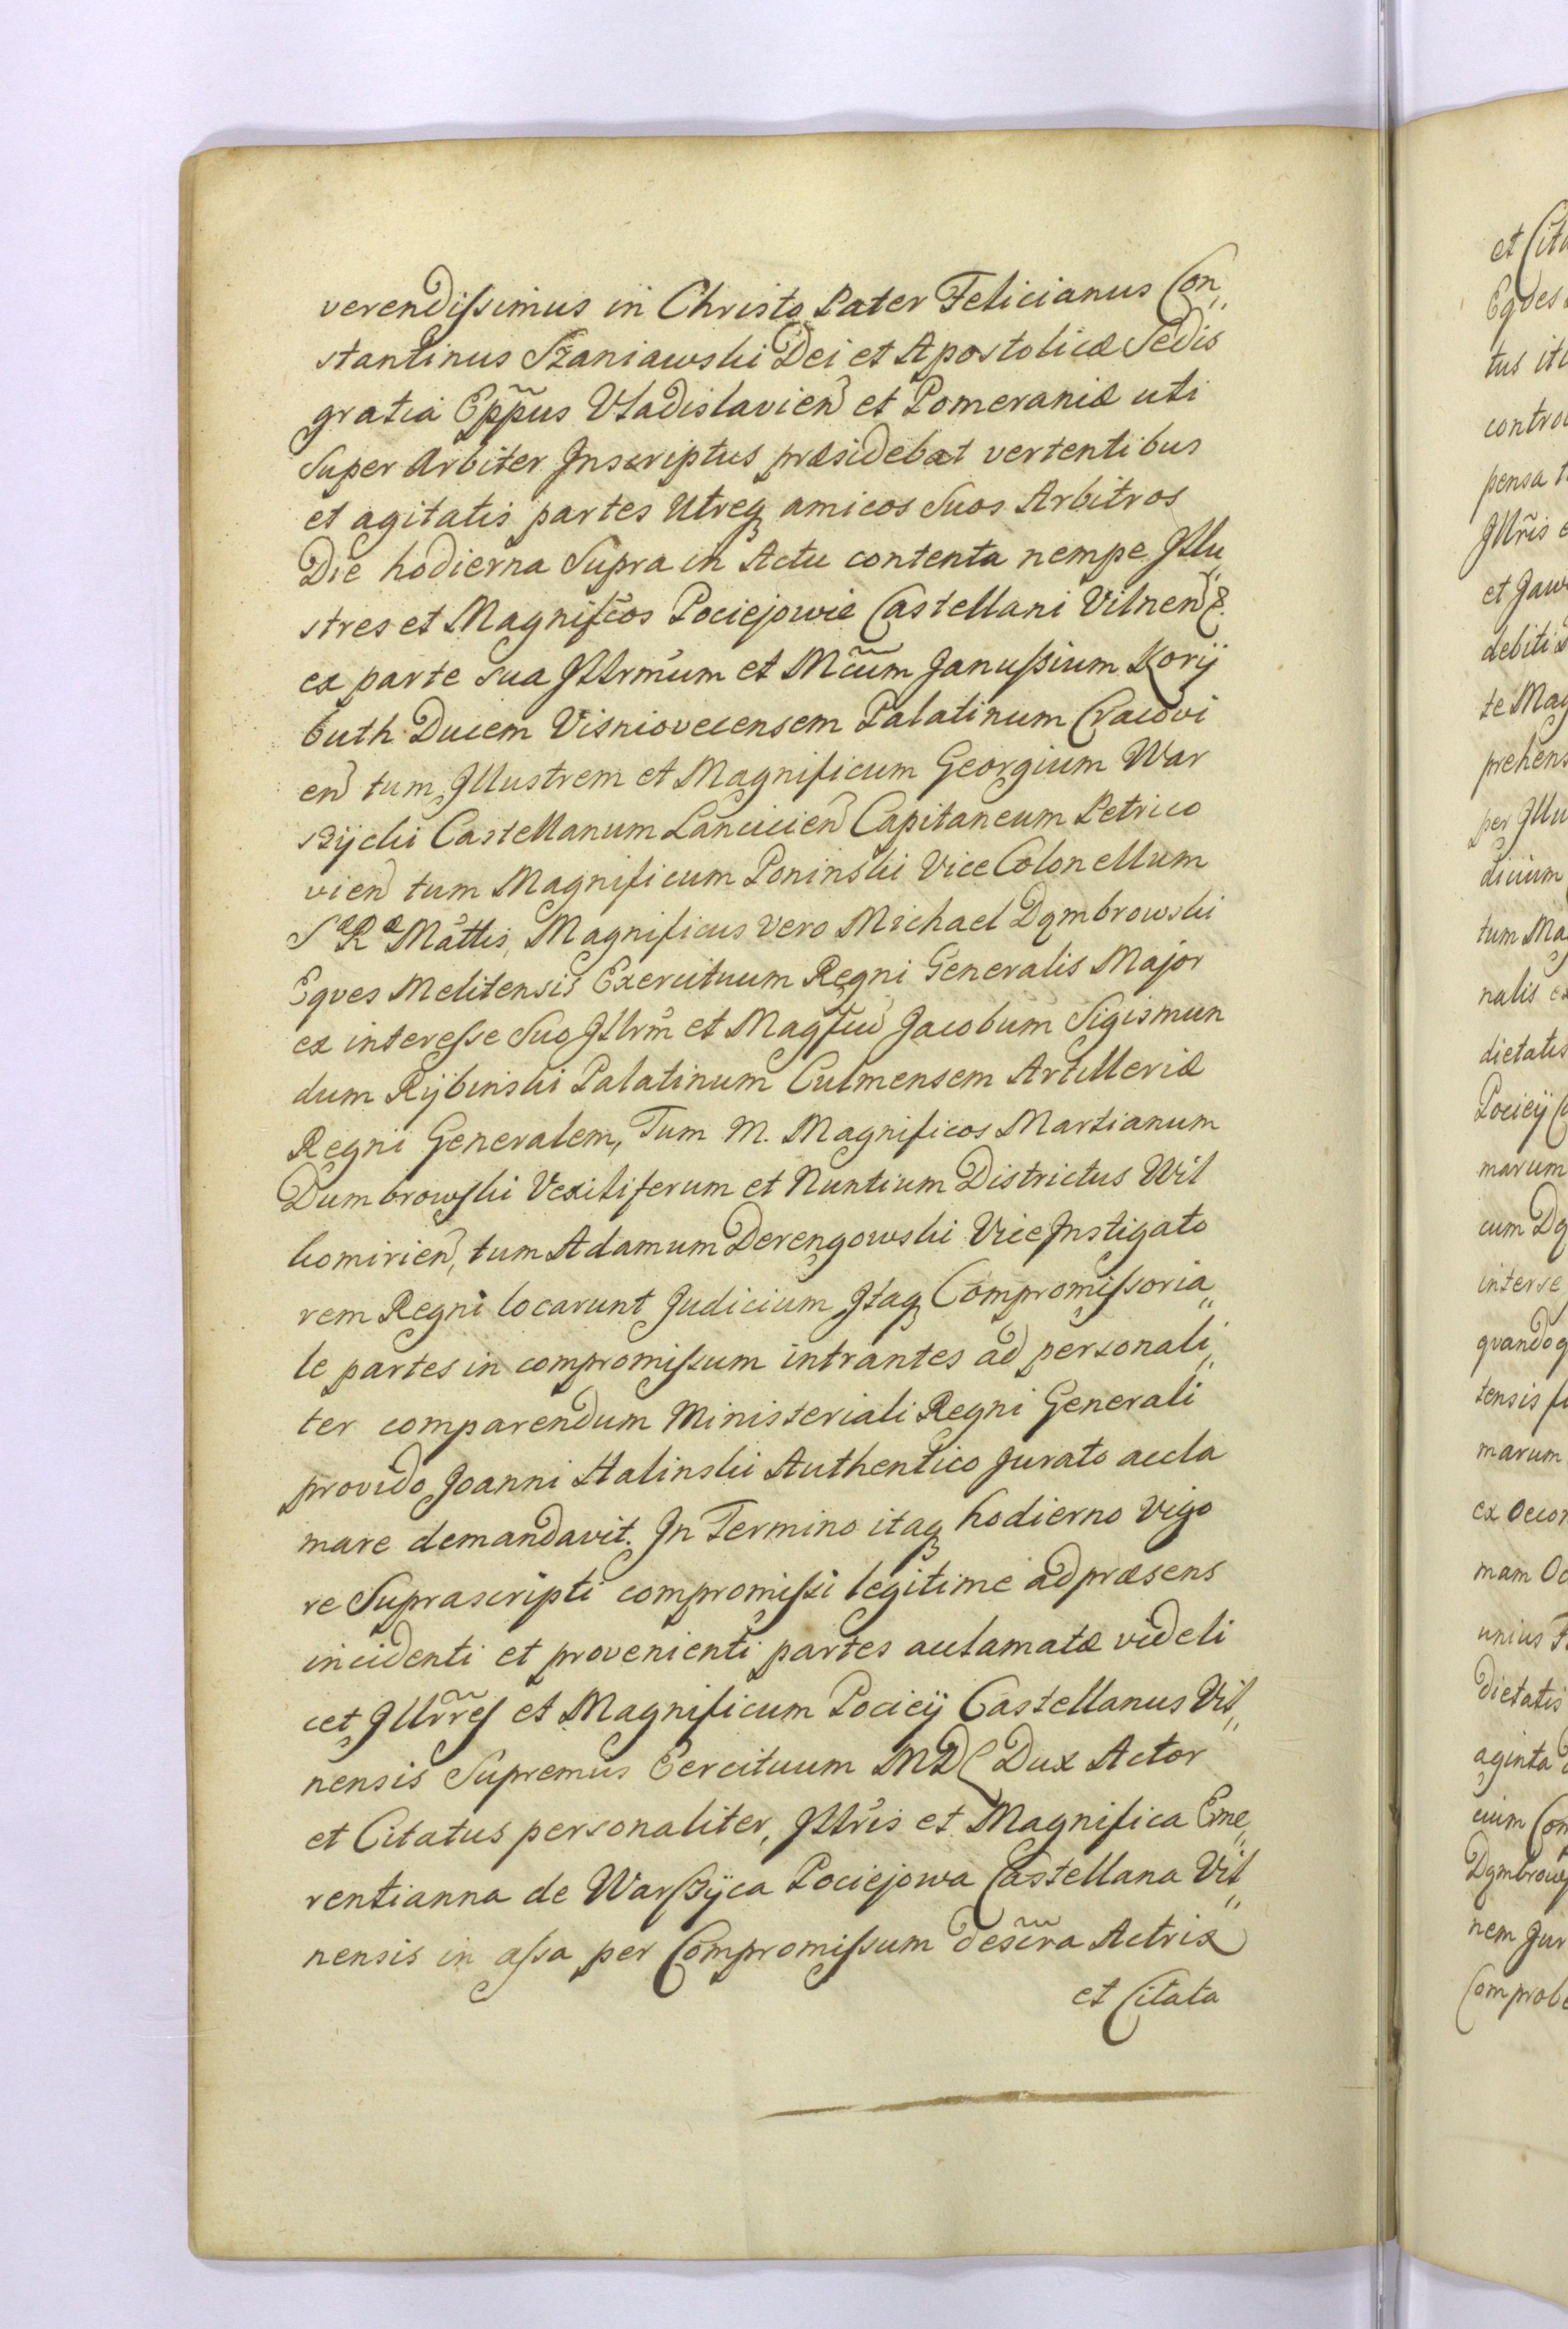 verendiſsimus in Christo Pater Felicianus Con„
stantinus Szaniawski Dei et Apostolicæ Sedis
gratia Epp̃us Vladislavien̄ et Pomeraniæ uti
Super Arbiter Inscriptus præsidebat vertentibus
et agitatis partes Utreqꝫ amicos Suos Arbitros
Die hodierna Supra in Actu contenta nempe Illu„
stres et Magnifc̃os Pociejowie Castellani Vilnen̄
ex parte sua Illrmũm et Mc̃um Januſsium Kory
buth Ducem Visniovecensem Palatinum Cracovi
en̄ tum Illustrem et Magnificum Georgium War
szÿcki Castellanum Lancicien̄ Capitaneum Petrico
vien̄ tum Magnificum Poninski ViceColonellum
Sæ Ræ Mãttis, Magnificus vero Michael Dąmbrowski
Eqves Melitensis Exercituum Regni Generalis Major
ex intereſse Suo Illrm̃ et Magfcũ Jacobum Sigismun
dum Rÿbinski Palatinum Culmensem Artilleriæ
Regni Generalem, Tum M. Magnificos Martianum
Dumbrowſki Vexiliferum et Nuntium Districtus Wil
komirien̄, tum Adamum Derengowski ViceInstigato
rem Regni locarunt Judicium Itaqꝫ Compromiſsoria„
le partes in compromiſsum intrantes ad personali„
ter comparendum Ministeriali Regni Generali
provido Joanni Halinski Authentico Jurato accla
mare demandavit. In Termino itaqꝫ hodierno vigo
re Suprascripti compromiſsi legitime ad præsens
incidenti et provenienti partes acclamatæ videli
cet Illr̃reſ et Magnificum Pocieÿ Castellanus Vil„
nensis Supremus Eercituum MDL Dux Actor
et Citatus personaliter, Illrĩs et Magnifica Eme„
rentianna de Warſzÿca Pociejowa Castellana Vil„
nensis in aſsa per Compromiſsum desc̃ra Actrix
et Citata
et Cita
Eqves
tus it
contro
pensa t
Illrĩs e
et Jaw
debiti
te Mag
prehens
per Illu
dicium
tum Ma
nalis e
dictatis
Pocieÿ C
marum
cum Dą
interse
qvandoq
tensis f
marum
ex Oecon
mam Oc
unius F
dictatis
aginta
cium Com
Dąmbrowſ
nem Jur
Comprob